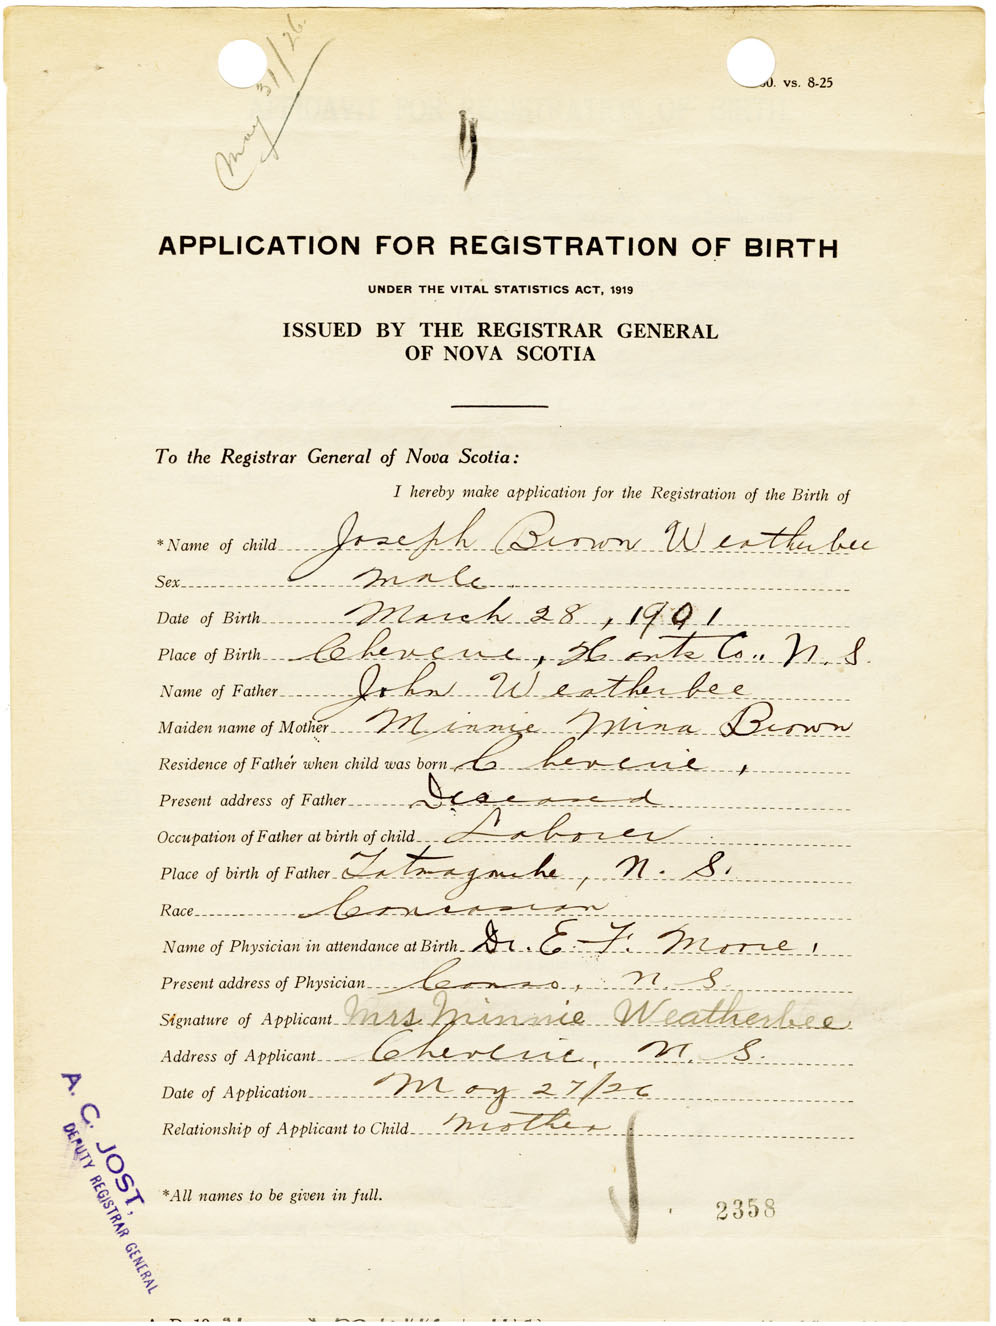 May 31/26
50. vs. 8-25
APPLICATION FOR REGISTRATION OF BIRTH
UNDER THE VITAL STATISTICS ACT, 1919
ISSUED BY THE REGISTRAR GENERAL
OF NOVA SCOTIA
To the Registrar General of Nova Scotia:
I hereby make application for the Registration of the Birth of
*Name of child Joseph Brown Weatherbee
Sex male
Date of Birth March 28, 1901
Place of Birth Cheverie, Hants Co., N.S.
Name of Father John Weatherbee
Maiden name of Mother Minnie Mina Brown
Residence of Father when child was born Cheverie,
Present address of Father Deseased
Occupation of Father at birth of child Laborer
Place of birth of Father Tatmagouche, N.S.
Race Concasian
Name of Physician in attendance at Birth Dr. E. F. Moore,
Present address of Physician Canso, N.S.
Signature of Applicant Mrs Minnie Weatherbee
Address of Applicant Cheverie, N.S.
Date of Application May 27/26
Relationship of Applicant to Child Mother
A. C. JOST,
DEPUTY REGISTRAR GENERAL
*All names to be given in full.
2358